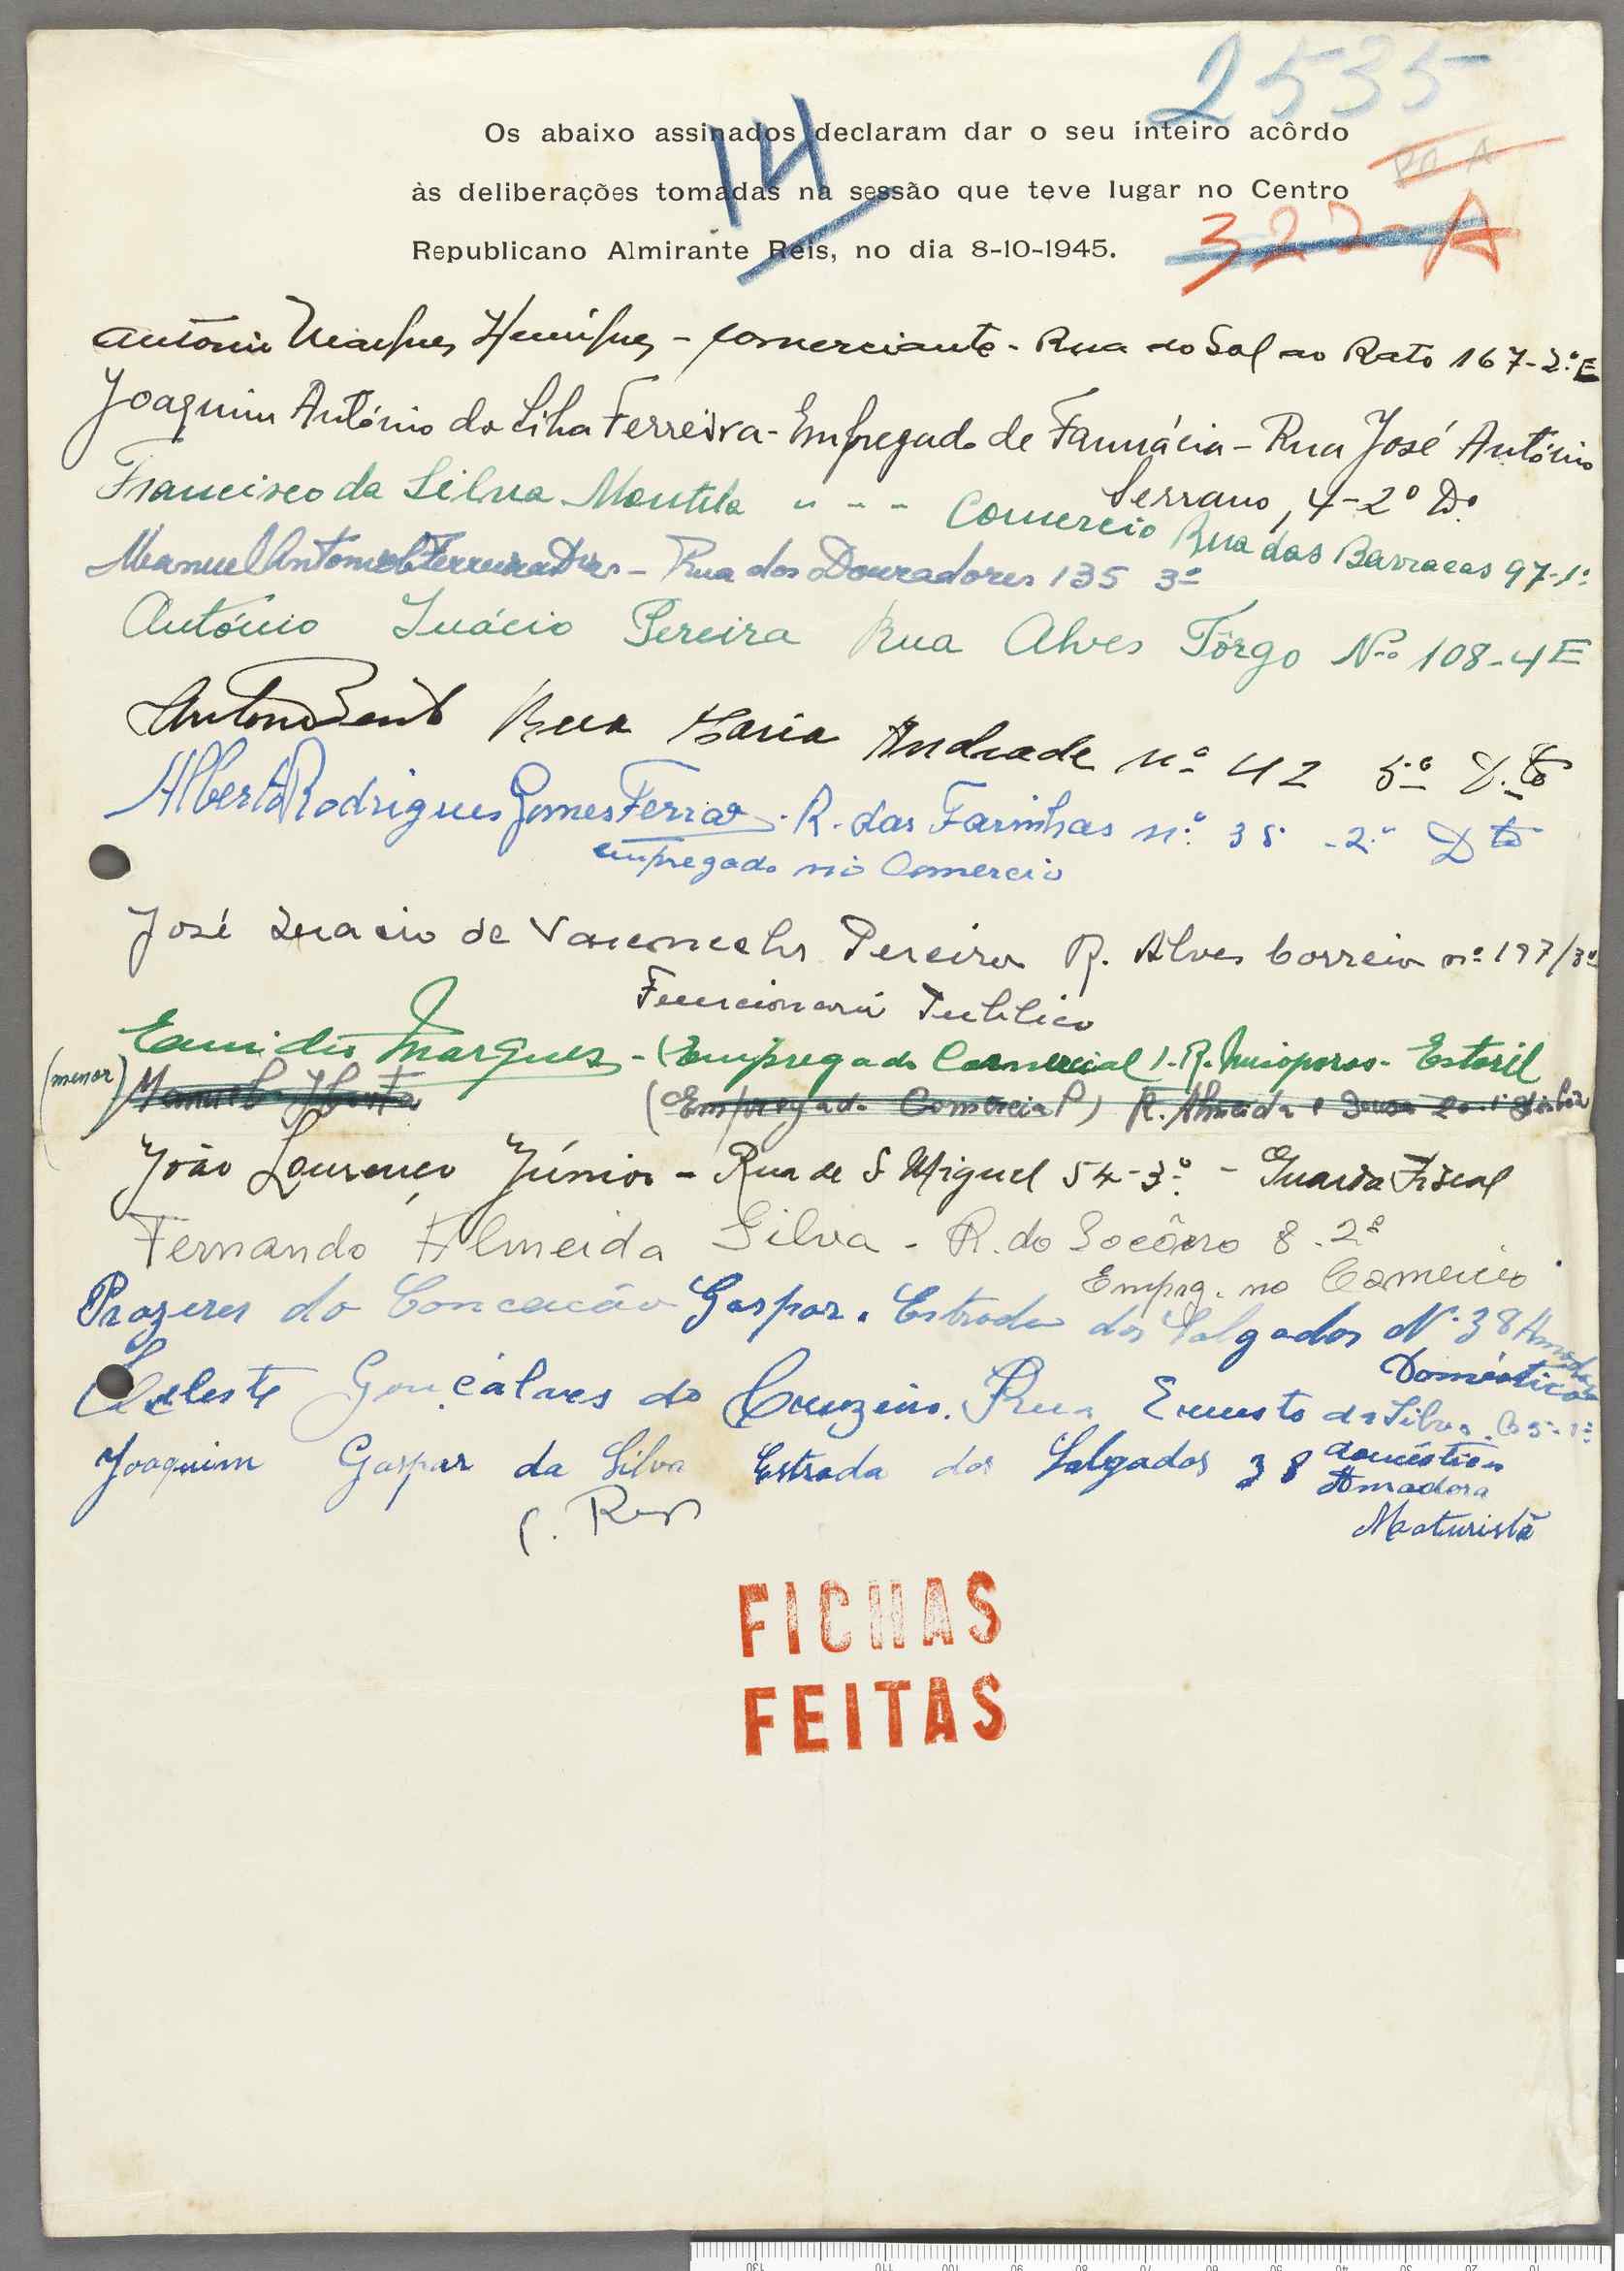 2535
Os abaixo assinados declaram dar o seu inteiro acôrdo
14
às deliberações tomadas na sessão que teve lugar no Centro
Republicano Almirante Reis, no dia 8-10-1945.
322-A
António Marques Henriques - comerciante - Rua do Sol ao Rato 167-2.º E
Joaquim António da Silva Ferreira - Empregado de Farmácia - Rua José António
Serrano, 4-2º Dº
Francisco da Silva Montela " - - Comercio Rua das Barracas 97-1º
Manuel Ferreira Dias - Rua dos Douradores 135 3º
António Inácio Pereira Rua Alves Tôrgo Nº 108-4E
António Bento Rua Maria Andrade nº 42 5º D.to
Alberto Rodrigues Gomes Ferrar - R. das Farinhas n.º 35 - 2.º Dto
empregado no Comercio
José Inacio de Vasconcelos Pereira R. Alves Correia nº 197/3º
Funcionario Publico
Emidio Marques - (Empregado Comercial) - R. - Estoril
(menor) Manuel (Empregado Comercial) R. Almeida e Sousa
João Lourenço Júnior - Rua de S Miguel 54-3º - Guarda Fiscal
Fernando Almeida Silva - R. do Socôrro 8-2º
Empreg. no Comercio
Prazeres da Conceição Gaspar. Estrada dos Salgados Nº 38 Amadora
Doméstica
Celeste Gonçalves do Cruzeiro. Rua Ernesto da Silva. 1º
doméstica
Joaquim Gaspar da Silva Estrada dos Salgados 38 Amadora
Moturista
FICHAS
FEITAS